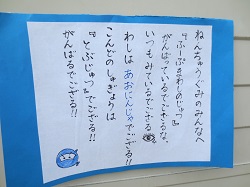 ねんちゅうぐみのみんなへ
『ぷーぷーまわしのじゅつ』
がんばっているでござるな。
いつもみているでござる
わしは あおにんじゃでござる!!
こんどのしゅぎょうは
『とぶじゅつ』でござる!!
がんばるでござる!!